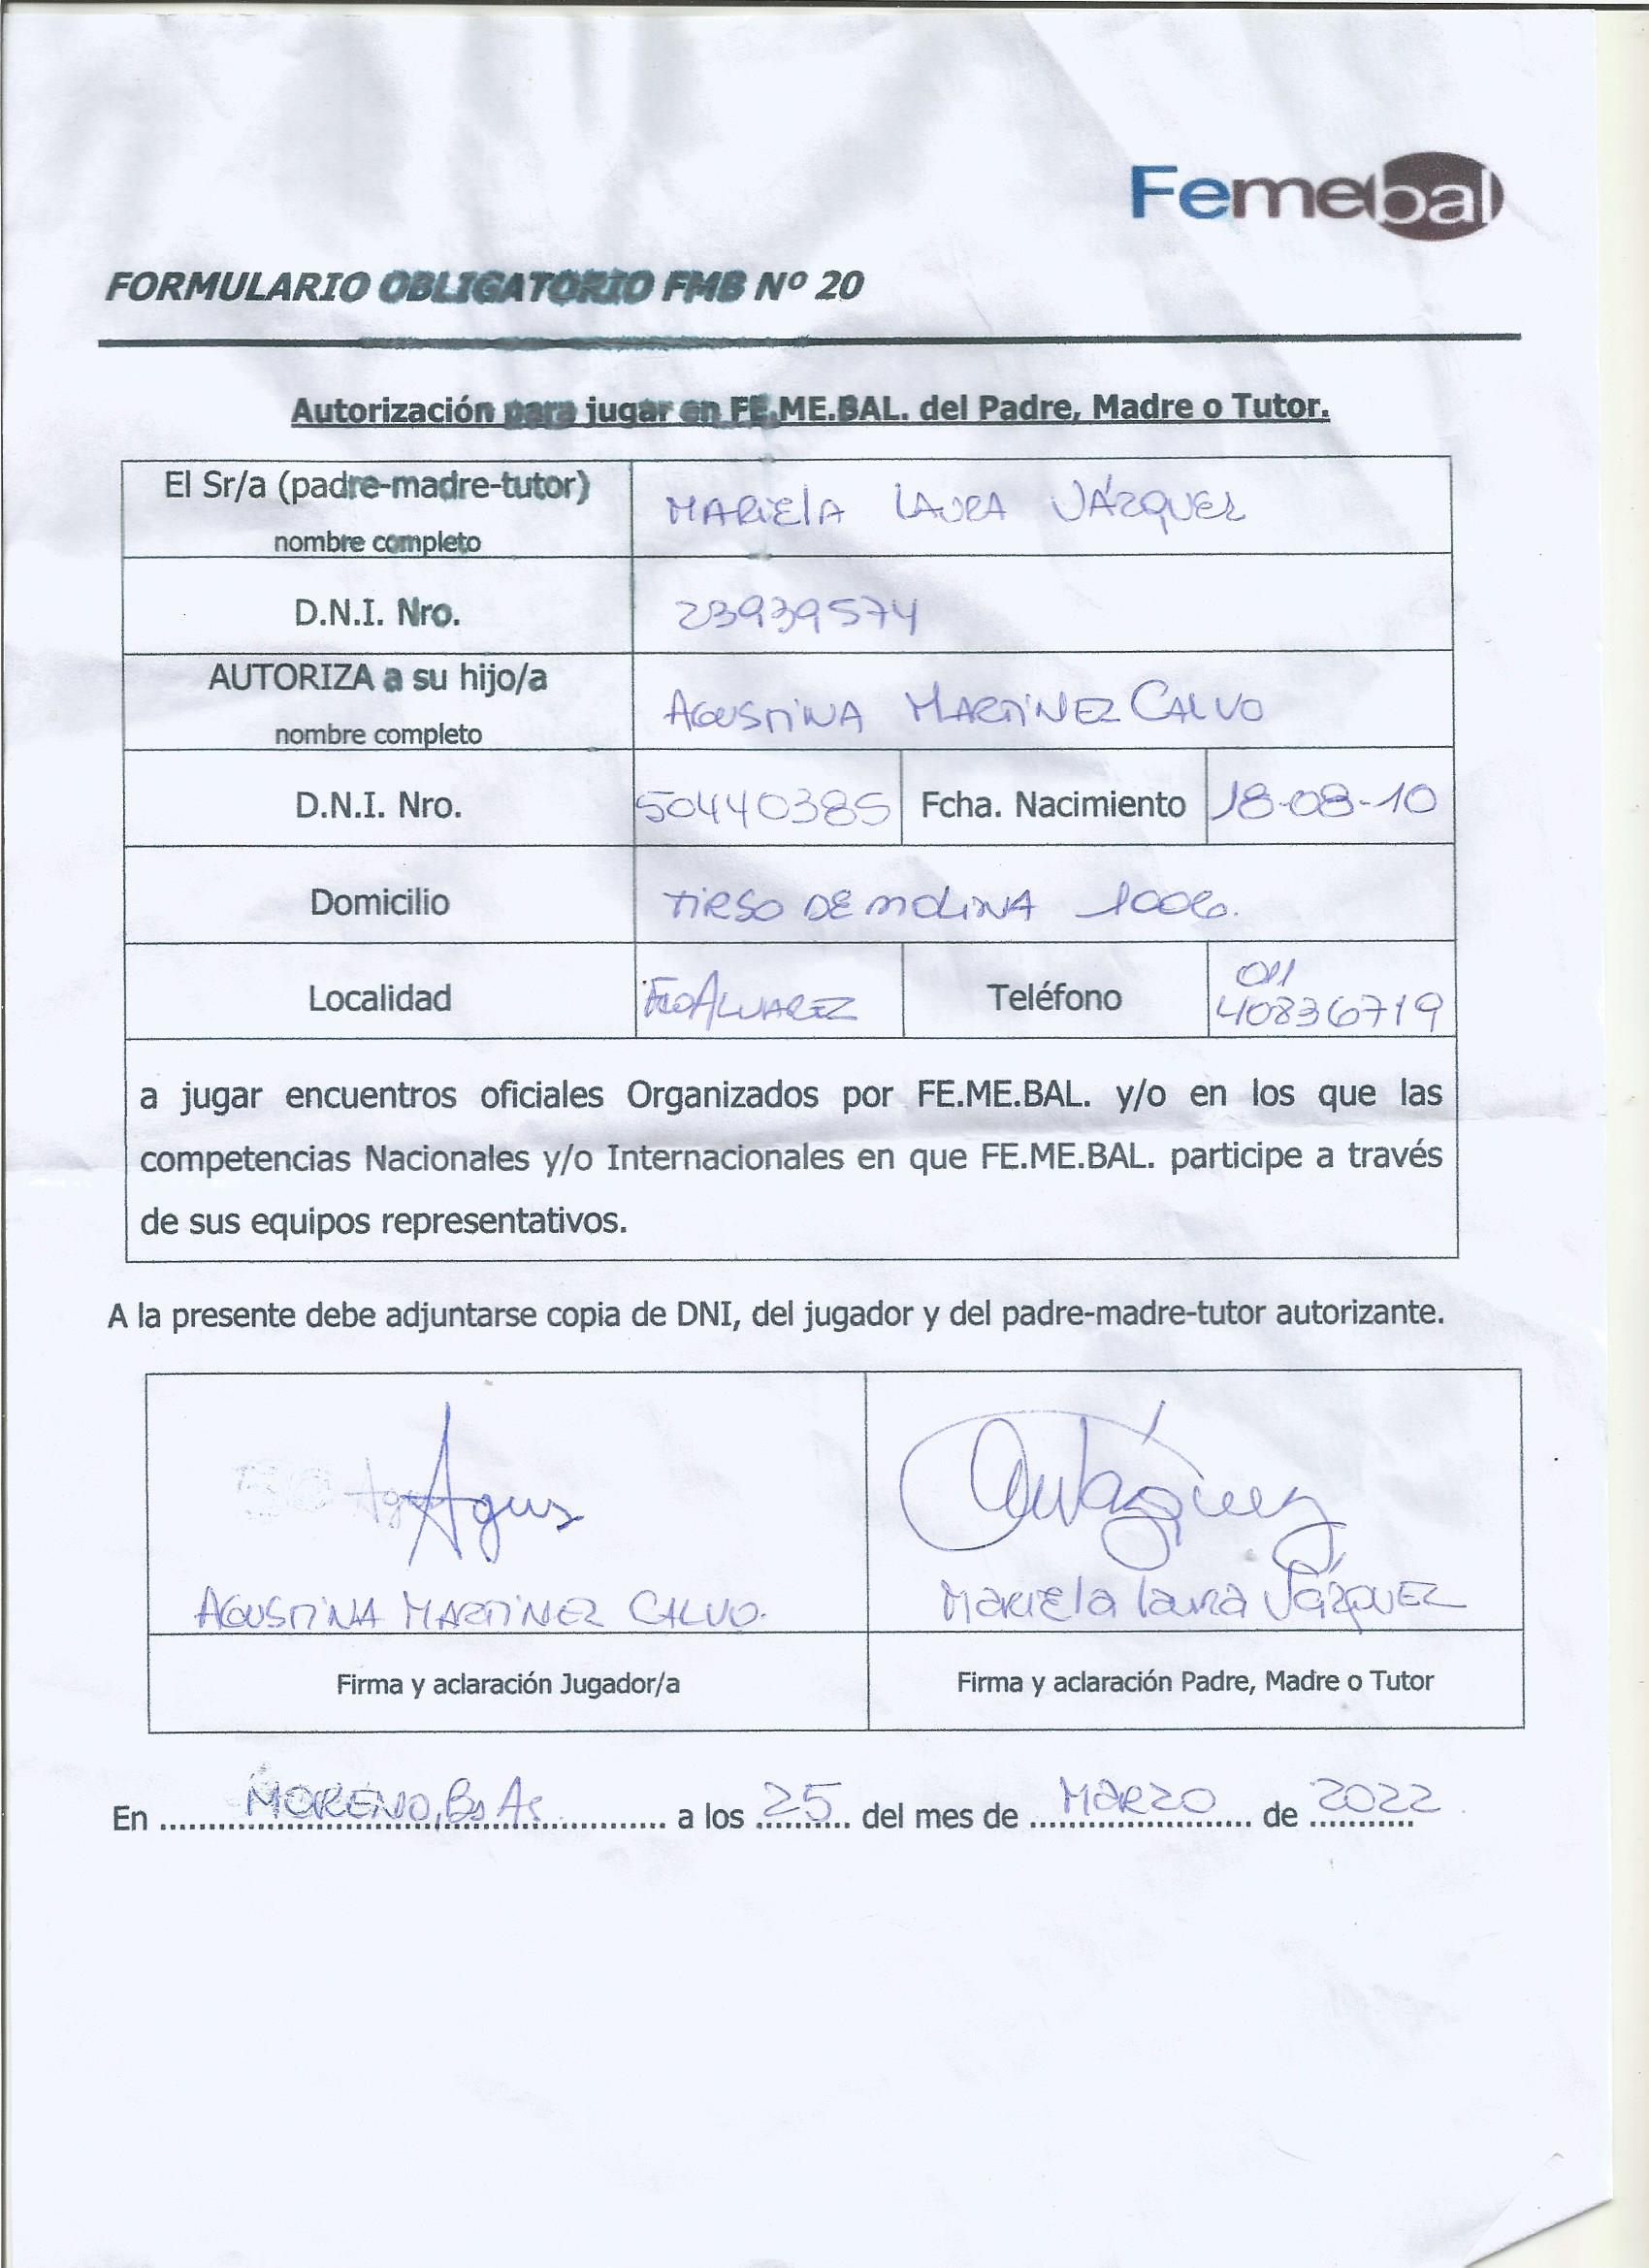 Femebal
FORMULARIO OBLIGATORIO FMB Nº 20
Autorización para jugar en FE.ME.BAL. del Padre, Madre o Tutor.
El Sr/a (padre-madre-tutor)
nombre completo
MARIELA LAURA VÁZQUEZ
D.N.I. Nro.
23939574
AUTORIZA a su hijo/a
nombre completo
AGUSTINA MARTINEZ CALVO
D.N.I. Nro.
50440385
Fcha. Nacimiento
18-08-10
Domicilio
TIRSO DE MOLINA 1006.
Localidad
FCO ALVAREZ
Teléfono
011
40836719
a jugar encuentros oficiales Organizados por FE.ME.BAL. y/o en los que las
competencias Nacionales y/o Internacionales en que FE.ME.BAL. participe a través
de sus equipos representativos.
A la presente debe adjuntarse copia de DNI, del jugador y del padre-madre-tutor autorizante.
Agus
AGUSTINA MARTINEZ CALVO.
Vázquez
Mariela Laura VÁZQUEZ
Firma y aclaración Jugador/a
Firma y aclaración Padre, Madre o Tutor
En MORENO, Bs As. a los 25 del mes de MARZO de 2022.